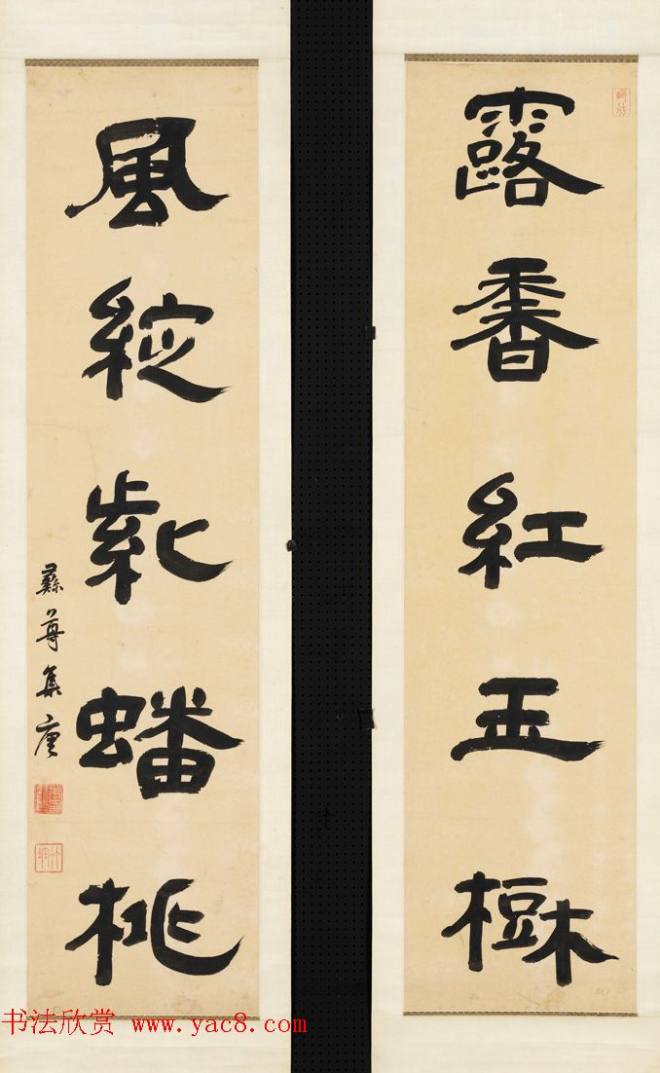 露香紅玉樹
風綻紫蟠桃
蘇尊集唐
书法欣赏 www.yac8.com